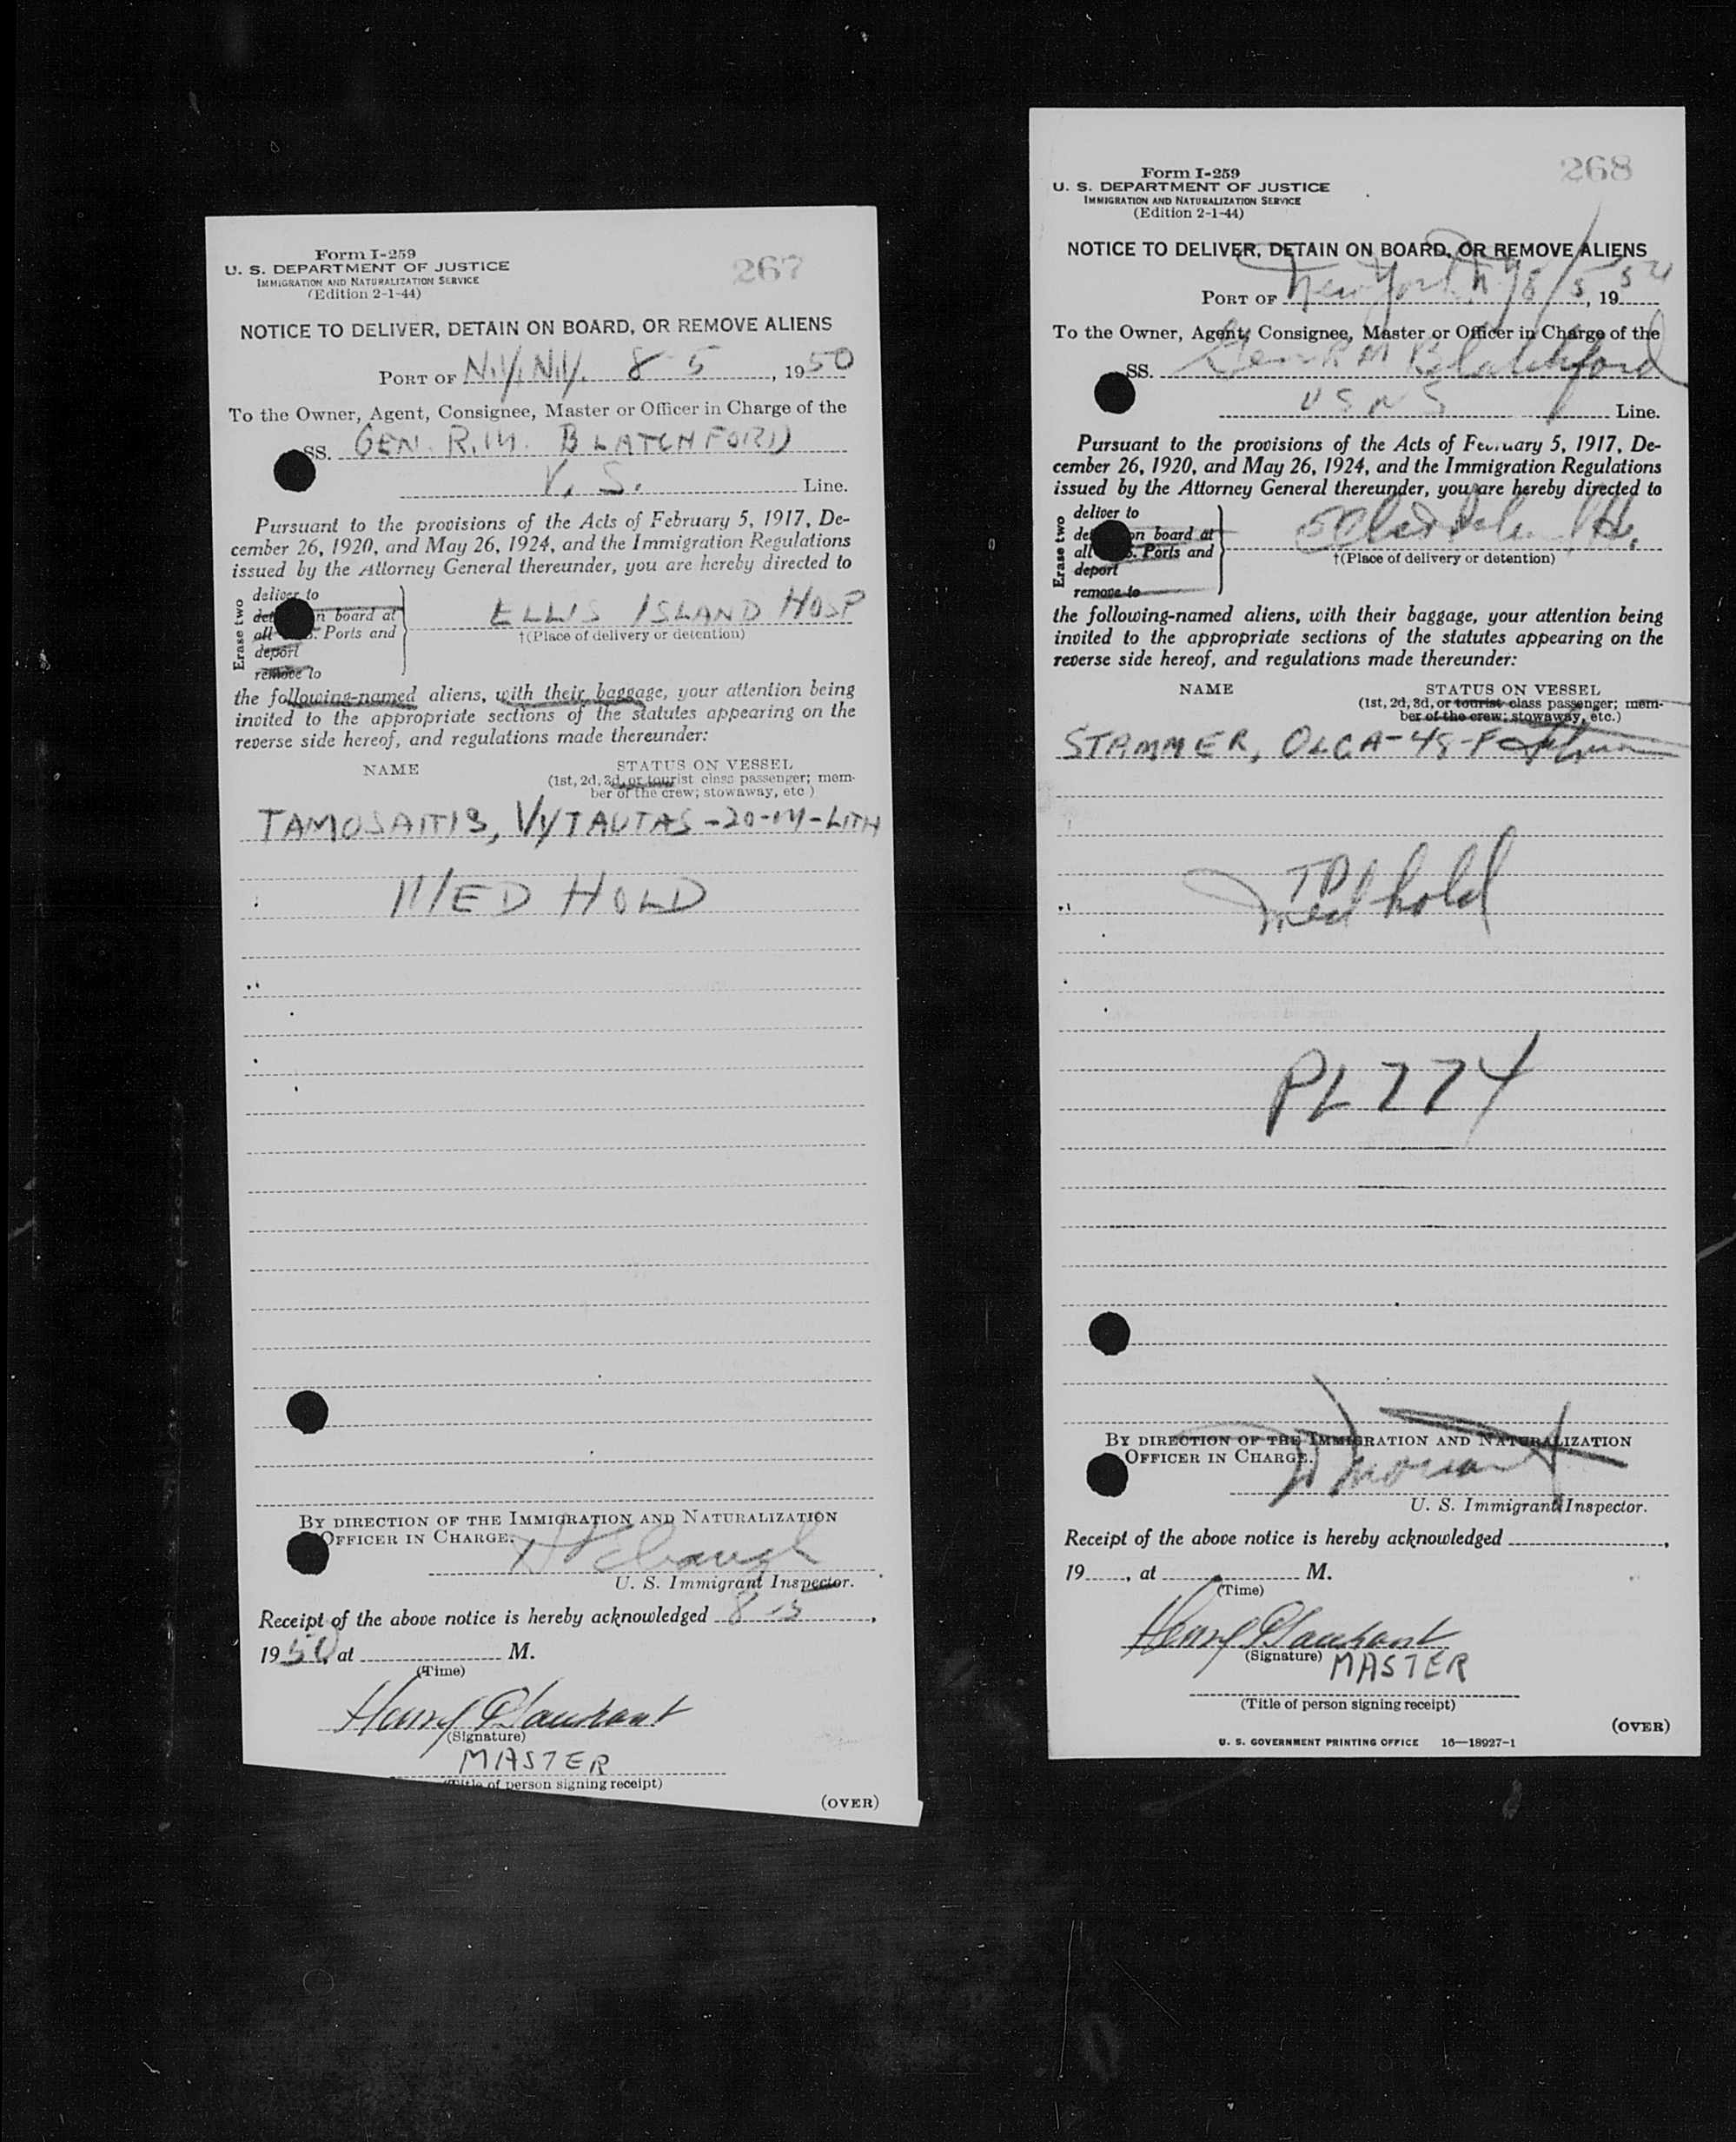 267
Form I-259
U. S. DEPARTMENT OF JUSTICE
IMMIGRATION AND NATURALIZATION SERVICE
(Edition 2-1-44)
NOTICE TO DELIVER, DETAIN ON BOARD, OR REMOVE ALIENS
PORT OF N.Y. N.Y. 8 5, 1950
To the Owner, Agent, Consignee, Master or Officer in Charge of the
SS. GEN. R.M. BLATCHFORD
Line.
Pursuant to the provisions of the Acts of February 5, 1917, De-
cember 26, 1920, and May 26, 1924, and the Immigration Regulations
issued by the Attorney General thereunder, you are hereby directed to
Erase two
deliver to
n board at
all Ports and
deport
remove to
ELLIS ISLAND HOSP
†(Place of delivery or detention)
the following-named aliens, with their baggage, your attention being
invited to the appropriate sections of the statutes appearing on the
reverse side hereof, and regulations made thereunder:
NAME STATUS ON VESSEL
(1st, 2d, 3d, or tourist class passenger; mem-
ber of the crew; stowaway, etc.)
TAMOSAITIS, VYTAUTAS-20-M-LITH
MED HOLD
BY DIRECTION OF THE IMMIGRATION AND NATURALIZATION
OFFICER IN CHARGE.
U. S. Immigrant Inspector.
Receipt of the above notice is hereby acknowledged 8-5,
1950, at M.
(Time)
Henry
(Signature)
MASTER
(Title of person signing receipt)
(OVER)
268
Form I-259
U. S. DEPARTMENT OF JUSTICE
IMMIGRATION AND NATURALIZATION SERVICE
(Edition 2-1-44)
NOTICE TO DELIVER, DETAIN ON BOARD, OR REMOVE ALIENS
PORT OF New York NY 8/5, 1950
To the Owner, Agent, Consignee, Master or Officer in Charge of the
SS. Gen R M Blatchford
USNS Line.
Pursuant to the provisions of the Acts of February 5, 1917, De-
cember 26, 1920, and May 26, 1924, and the Immigration Regulations
issued by the Attorney General thereunder, you are hereby directed to
Erase two
deliver to
on board at
all Ports and
deport
remove to
†(Place of delivery or detention)
the following-named aliens, with their baggage, your attention being
invited to the appropriate sections of the statutes appearing on the
reverse side hereof, and regulations made thereunder:
NAME STATUS ON VESSEL
(1st, 2d, 3d, or tourist class passenger; mem-
ber of the crew; stowaway, etc.)
STAMMER, OLGA-48-F
Med hold
PL 774
BY DIRECTION OF THE IMMIGRATION AND NATURALIZATION
OFFICER IN CHARGE.
U. S. Immigrant Inspector.
Receipt of the above notice is hereby acknowledged ,
19 , at M.
(Time)
Henry
(Signature)
MASTER
(Title of person signing receipt)
(OVER)
U. S. GOVERNMENT PRINTING OFFICE 16—18927-1